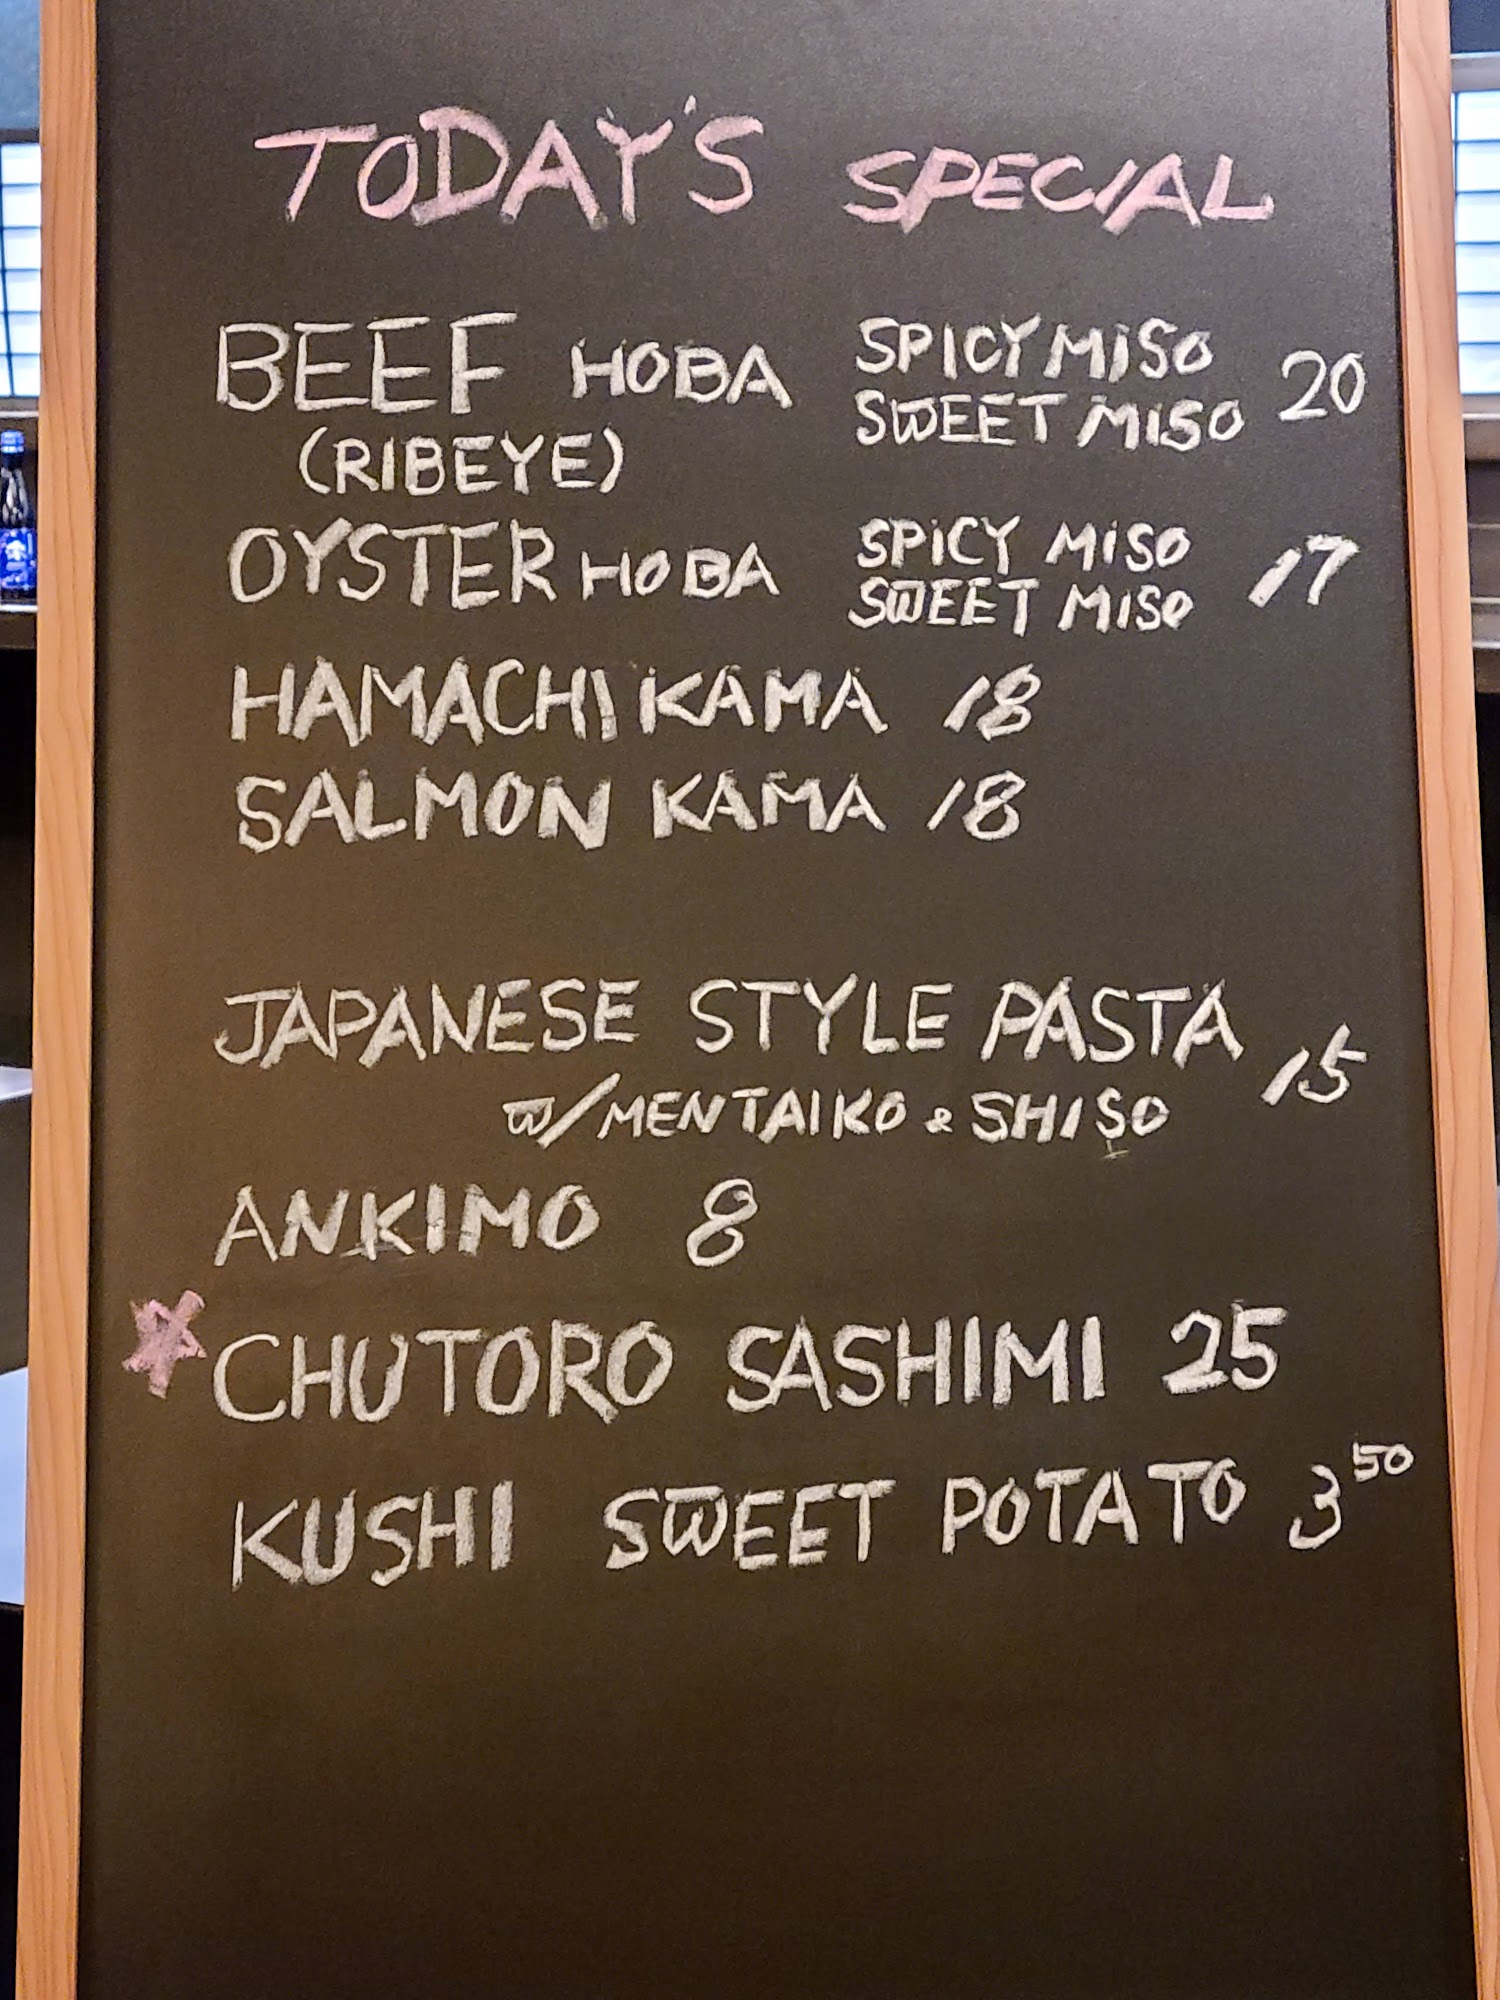 TODAY'S SPECIAL
BEEF HOBA SPICY MISO 20
(RIBEYE) SWEET MISO
OYSTER HOBA SPICY MISO 17
SWEET MISO
HAMACHI KAMA 18
SALMON KAMA 18
JAPANESE STYLE PASTA 15
W/MENTAIKO & SHISO
ANKIMO 8
CHUTORO SASHIMI 25
KUSHI SWEET POTATO 3 50